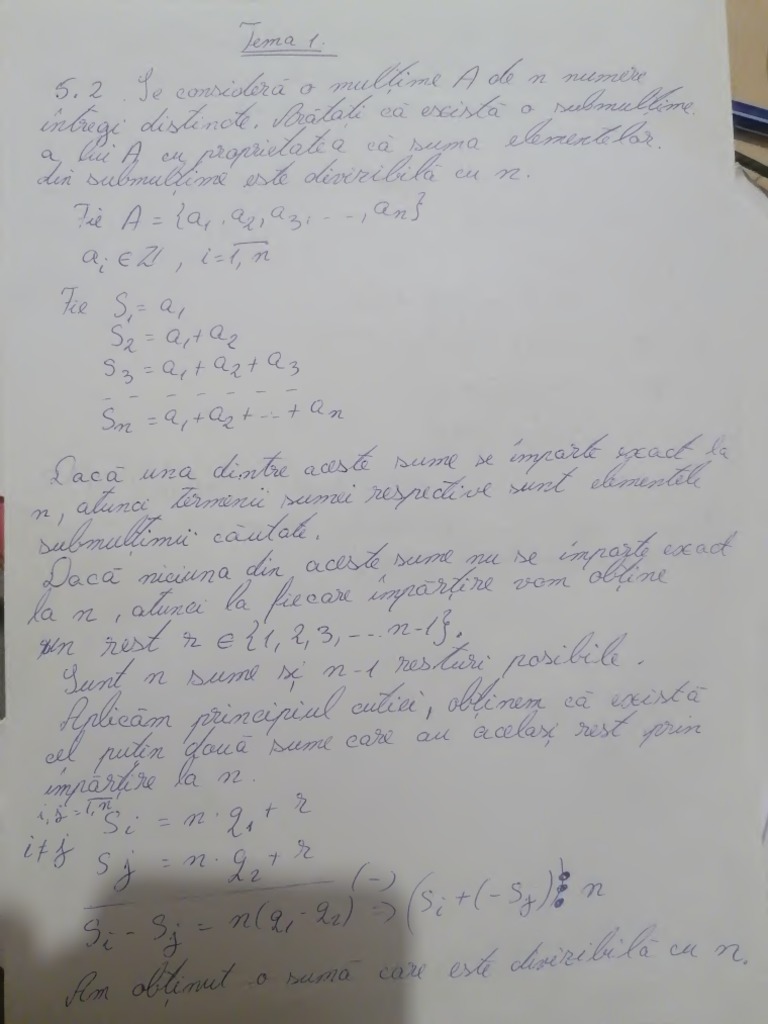 Tema 1.
5.2. Se consideră o mulțime A de n numere
întregi distincte. Arătați că există o submulțime
a lui A cu proprietatea că suma elementelor
din submulțime este divizibilă cu n.
Fie A = {a₁, a₂, a₃, ..., aₙ}
aᵢ ∈ ℤ, i = \overline{1,n}
Fie S₁ = a₁
S₂ = a₁ + a₂
S₃ = a₁ + a₂ + a₃
- - - - - - -
Sₙ = a₁ + a₂ + ... + aₙ
Dacă una dintre aceste sume se împarte exact la
n, atunci termenii sumei respective sunt elementele
submulțimii căutate.
Dacă niciuna din aceste sume nu se împarte exact
la n, atunci la fiecare împărțire vom obține
un rest r ∈ {1, 2, 3, ... n-1}.
Sunt n sume și n-1 resturi posibile.
Aplicăm principiul cutiei, obținem că există
cel puțin două sume care au același rest prin
împărțire la n.
i, j = \overline{1,n} Sᵢ = n · q₁ + r
i ≠ j Sⱼ = n · q₂ + r
(-)
Sᵢ - Sⱼ = n(q₁ - q₂) => (Sᵢ + (-Sⱼ)) ⋮ n
Am obținut o sumă care este divizibilă cu n.